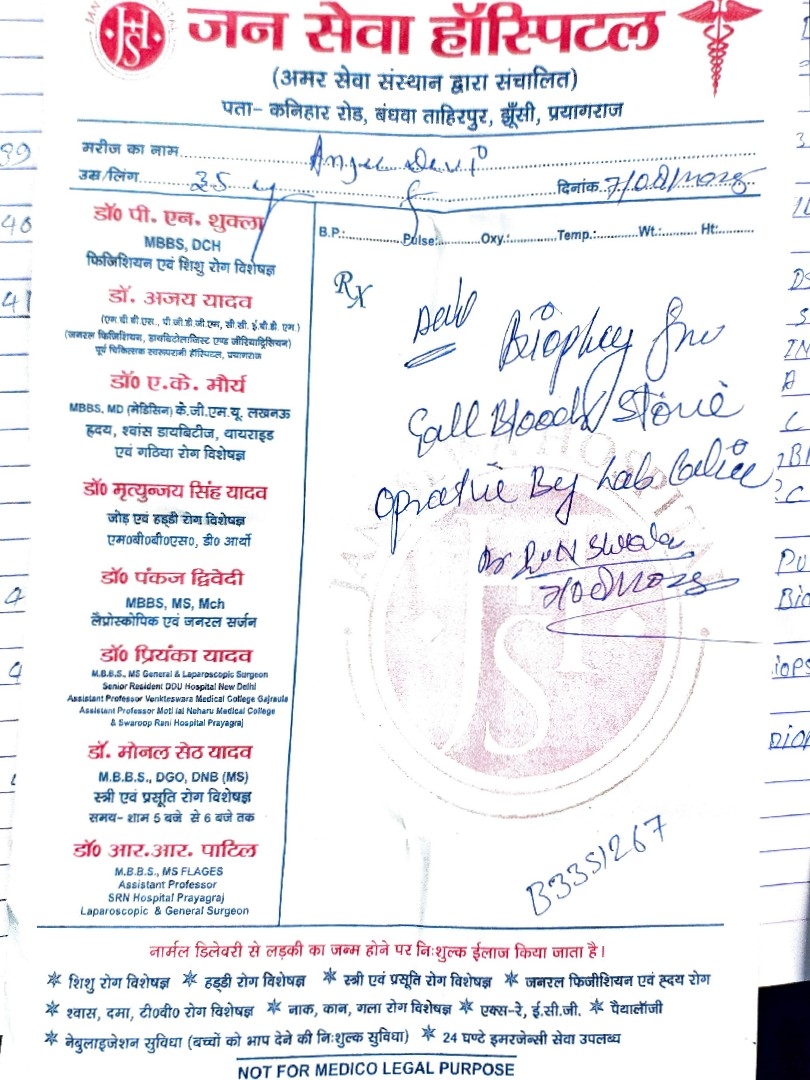 जन सेवा हॉस्पिटल
(अमर सेवा संस्थान द्वारा संचालित)
पता- कनिहार रोड, बंधवा ताहिरपुर, झूँसी, प्रयागराज
मरीज का नाम
उम्र/लिंग 35 y दिनांक
डॉ० पी. एन. शुक्ला
MBBS, DCH
फिजिशियन एवं शिशु रोग विशेषज्ञ
डॉ. अजय यादव
(एम.बी.बी.एस., पी.जी.डी.जी.एम, सी.सी. ई.बी.डी. एम.)
(जनरल फिजिशियन, डायबिटोलाजिस्ट एण्ड जीरियाट्रिसियन)
पूर्व चिकित्सक स्वरूपरानी हॉस्पिटल, प्रयागराज
डॉ० ए.के. मौर्य
MBBS, MD (मेडिसिन) के.जी.एम.यू. लखनऊ
ह्रदय, श्वांस डायबिटीज, थायराइड
एवं गठिया रोग विशेषज्ञ
डॉ० मृत्युन्जय सिंह यादव
जोड़ एवं हड्डी रोग विशेषज्ञ
एम०बी०बी०एस०, डी० आर्थो
डॉ० पंकज द्विवेदी
MBBS, MS, Mch
लैप्रोस्कोपिक एवं जनरल सर्जन
डॉ० प्रियंका यादव
M.B.B.S., MS General & Laparoscopic Surgeon
Senior Resident DDU Hospital New Delhi
Assistant Professor Venkteswara Medical College Gajraula
Assistant Professor Moti lal Neharu Medical College
& Swaroop Rani Hospital Prayagraj
डॉ. मोनल सेठ यादव
M.B.B.S., DGO, DNB (MS)
स्त्री एवं प्रसूति रोग विशेषज्ञ
समय- शाम 5 बजे से 6 बजे तक
डॉ० आर.आर. पाटिल
M.B.B.S., MS FLAGES
Assistant Professor
SRN Hospital Prayagraj
Laparoscopic & General Surgeon
B.P.: Pulse: Oxy.: Temp.: Wt.: Ht:
Rx
Gall Stone
By Lab
B3351267
नार्मल डिलेवरी से लड़की का जन्म होने पर निःशुल्क ईलाज किया जाता है।
* शिशु रोग विशेषज्ञ * हड्डी रोग विशेषज्ञ * स्त्री एवं प्रसूति रोग विशेषज्ञ * जनरल फिजीशियन एवं ह्दय रोग
* श्वास, दमा, टी०वी० रोग विशेषज्ञ * नाक, कान, गला रोग विशेषज्ञ * एक्स-रे, ई.सी.जी. * पैथालॉजी
* नेबुलाइजेशन सुविधा (बच्चों को भाप देने की निःशुल्क सुविधा) * 24 घण्टे इमरजेन्सी सेवा उपलब्ध
NOT FOR MEDICO LEGAL PURPOSE